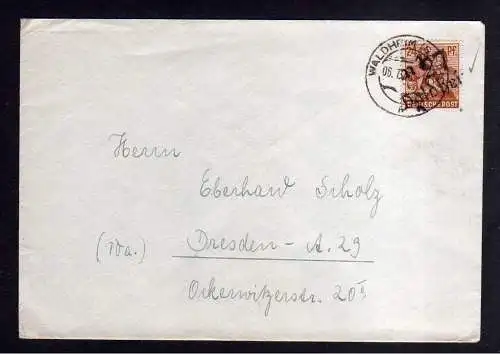 WALDHEIM
24 PF
67
06.
DEUTSCHE POST
Herrn
Eberhard Scholz
(Wa.) Dresden-A. 29
Ockerwitzerstr. 20